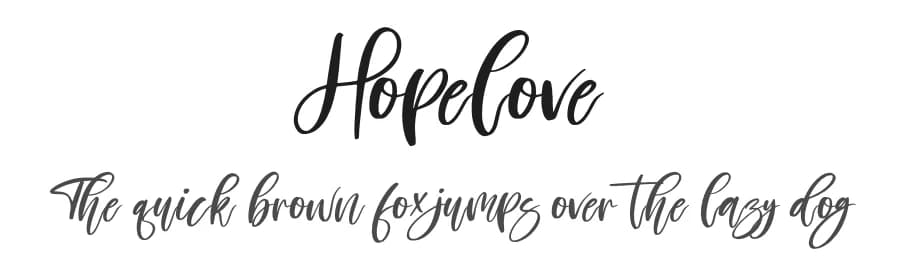 Hopelove
The quick brown fox jumps over the lazy dog